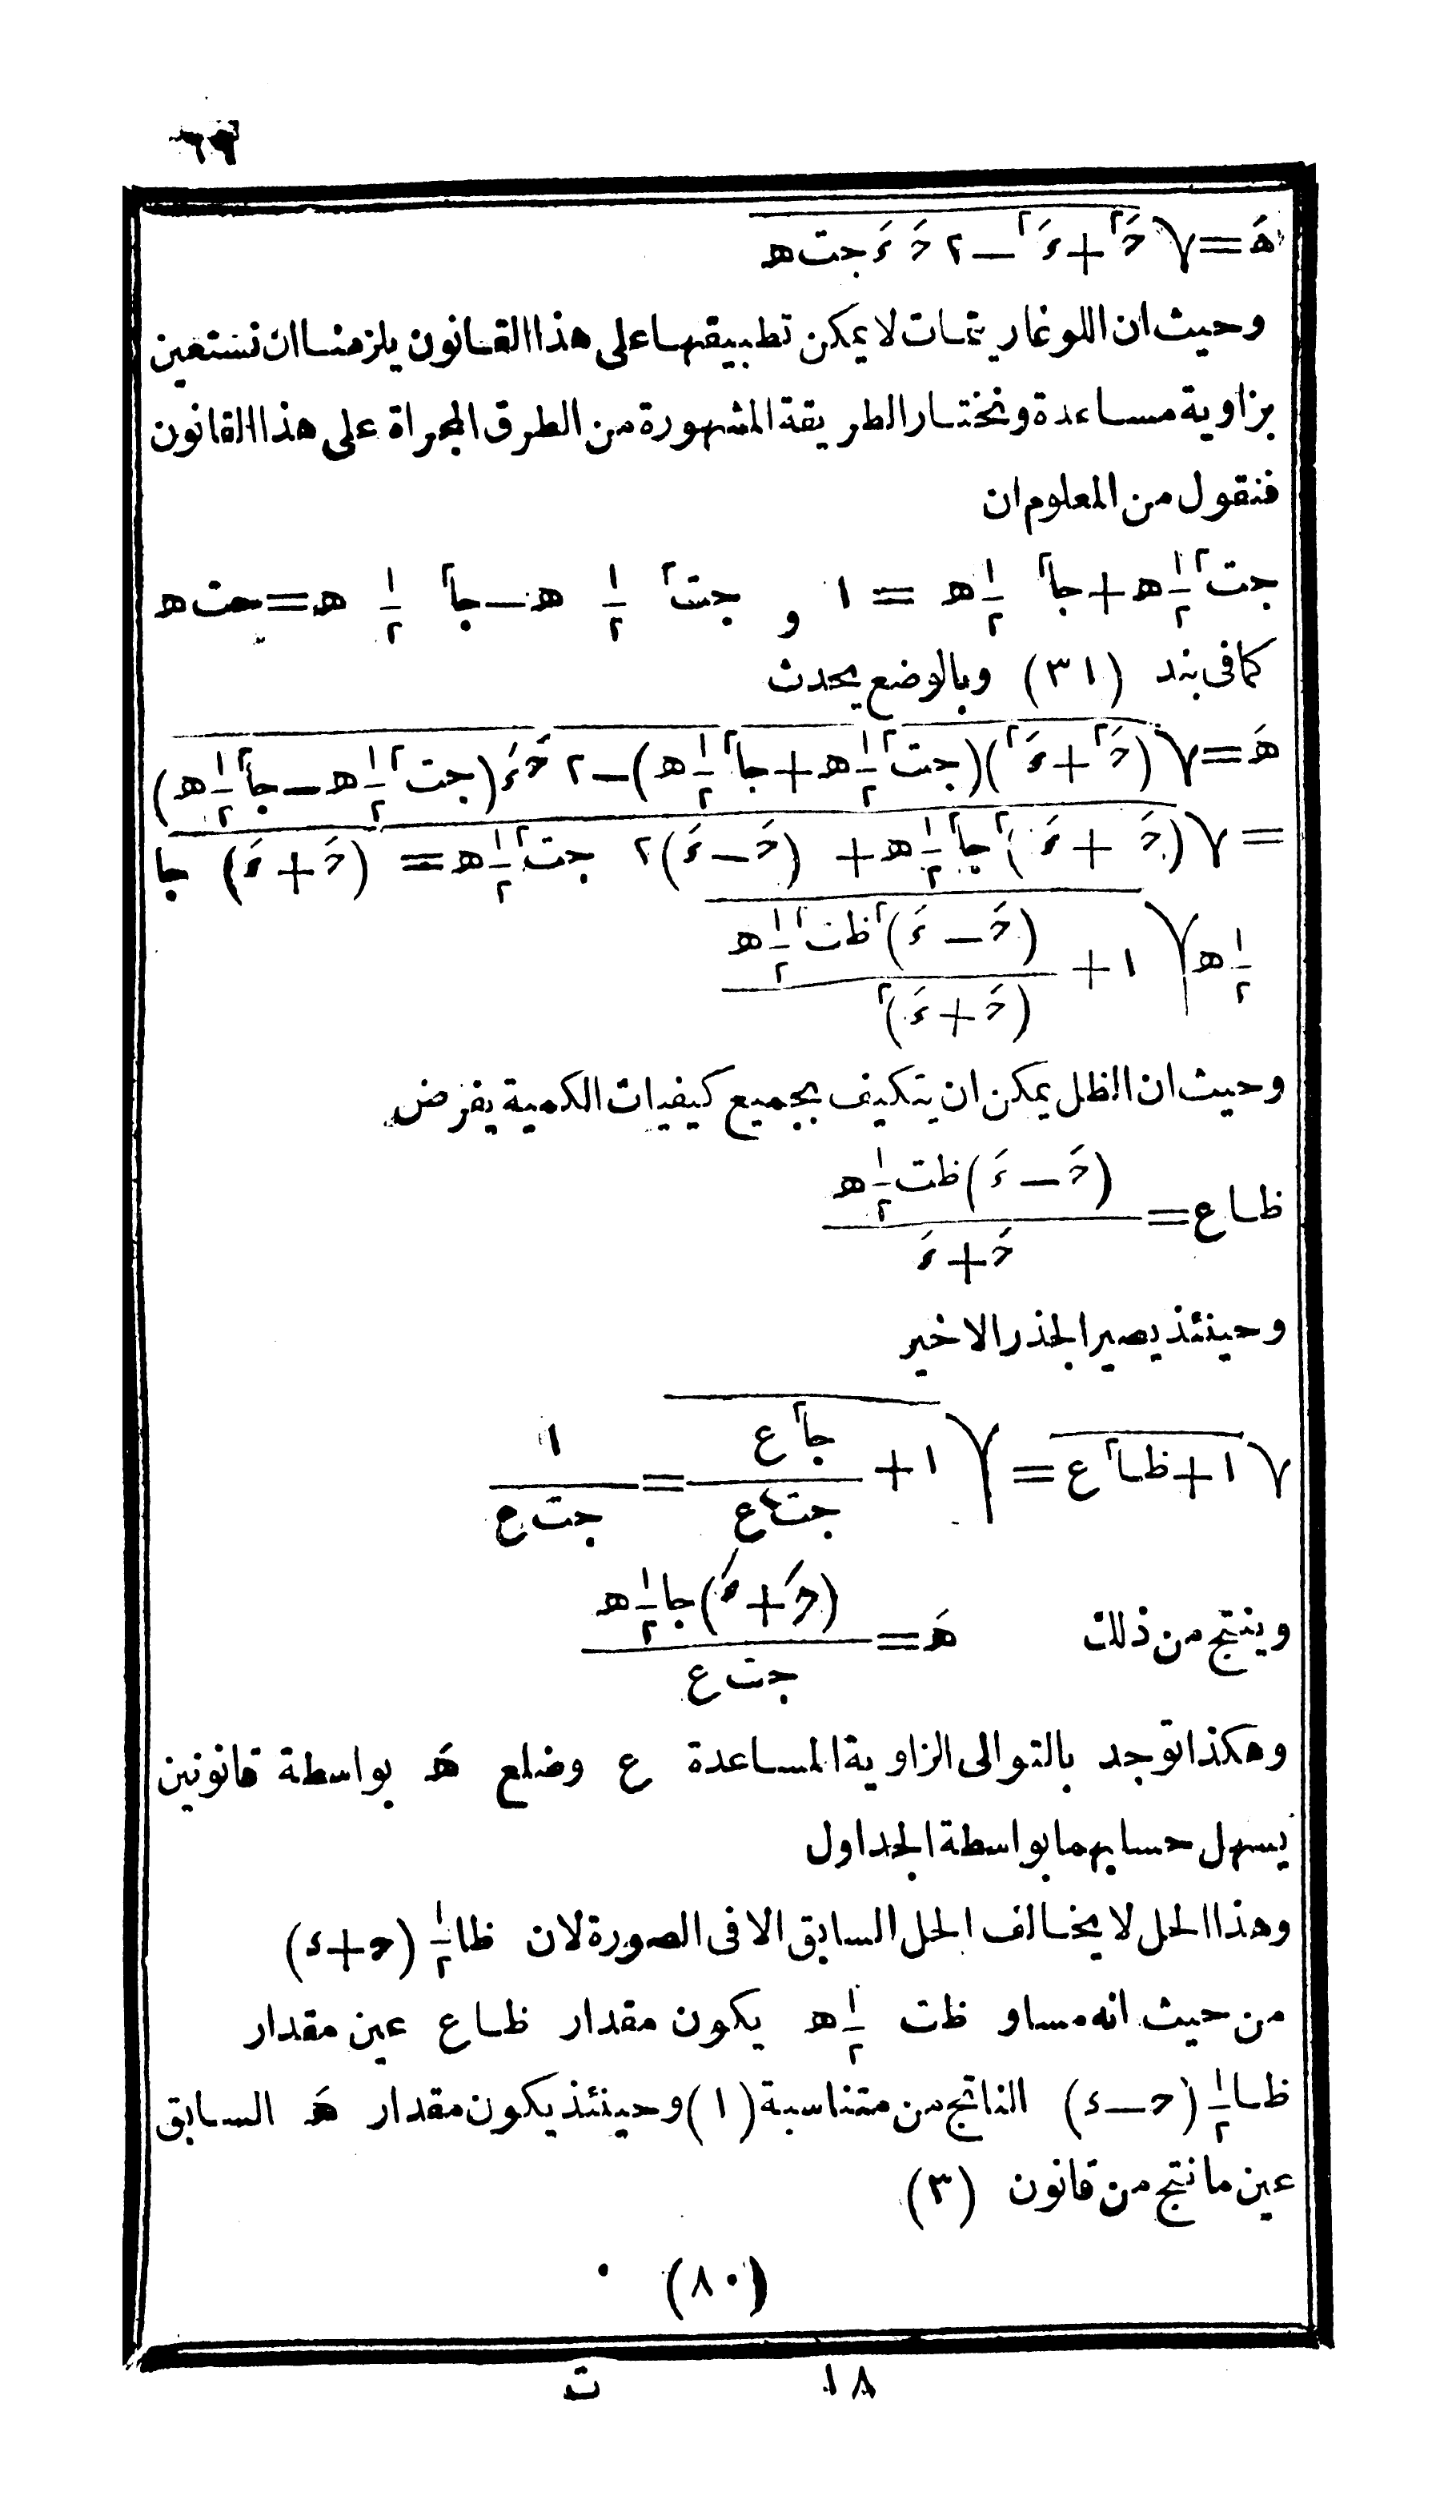 ٦٩
هَ = √(حَ٢ + ءَ٢ − ٢ حَ ءَ جت ه)
وحيث ان اللوغاريتمات لا يمكن تطبيقها على هذا القانون يلزمنا ان نستعين
بزاوية مساعدة ونختار الطريقة المشهورة من الطرق المجراة على هذا القانون
فنقول من المعلوم ان
جت٢ ١/٢ ه + جا٢ ١/٢ ه = ١ و جت٢ ١/٢ ه − جا٢ ١/٢ ه = جت ه
كما فى بند (٣١) وبالوضع يحدث
هَ = √(حَ٢ + ءَ٢)(جت٢ ١/٢ ه + جا٢ ١/٢ ه) − ٢ حَ ءَ (جت٢ ١/٢ ه − جا٢ ١/٢ ه)
= √(حَ + ءَ)٢ جا٢ ١/٢ ه + (حَ − ءَ)٢ جت٢ ١/٢ ه = (حَ + ءَ) جا
١/٢ ه √ ١ + (حَ − ءَ)٢ ظت٢ ١/٢ ه / (حَ + ءَ)٢
وحيث ان الظل يمكن ان يتكيف بجميع كيفيات الكمية يفرض
ظا ع = (حَ − ءَ) ظت ١/٢ ه / حَ + ءَ
وحينئذ يصير الجذر الاخير
√ ١ + ظا٢ ع = √ ١ + جا٢ ع / جت٢ ع = ١ / جت ع
وينتج من ذلك هَ = (حَ + ءَ) جا ١/٢ ه / جت ع
وهكذا توجد بالتوالى الزاوية المساعدة ع وضلع هَ بواسطة قانونين
يسهل حسابهما بواسطة الجداول
وهذا الحل لا يخالف الحل السابق الا فى الصورة لان ظا ١/٢ (ح + ء)
من حيث انه مساو ظت ١/٢ ه يكون مقدار ظا ع عين مقدار
ظا ١/٢ (ح − ء) الناتج من متناسبة (١) وحينئذ يكون مقدار هَ السابق
عين ما نتج من قانون (٣)
(٨٠)
١٨ ت